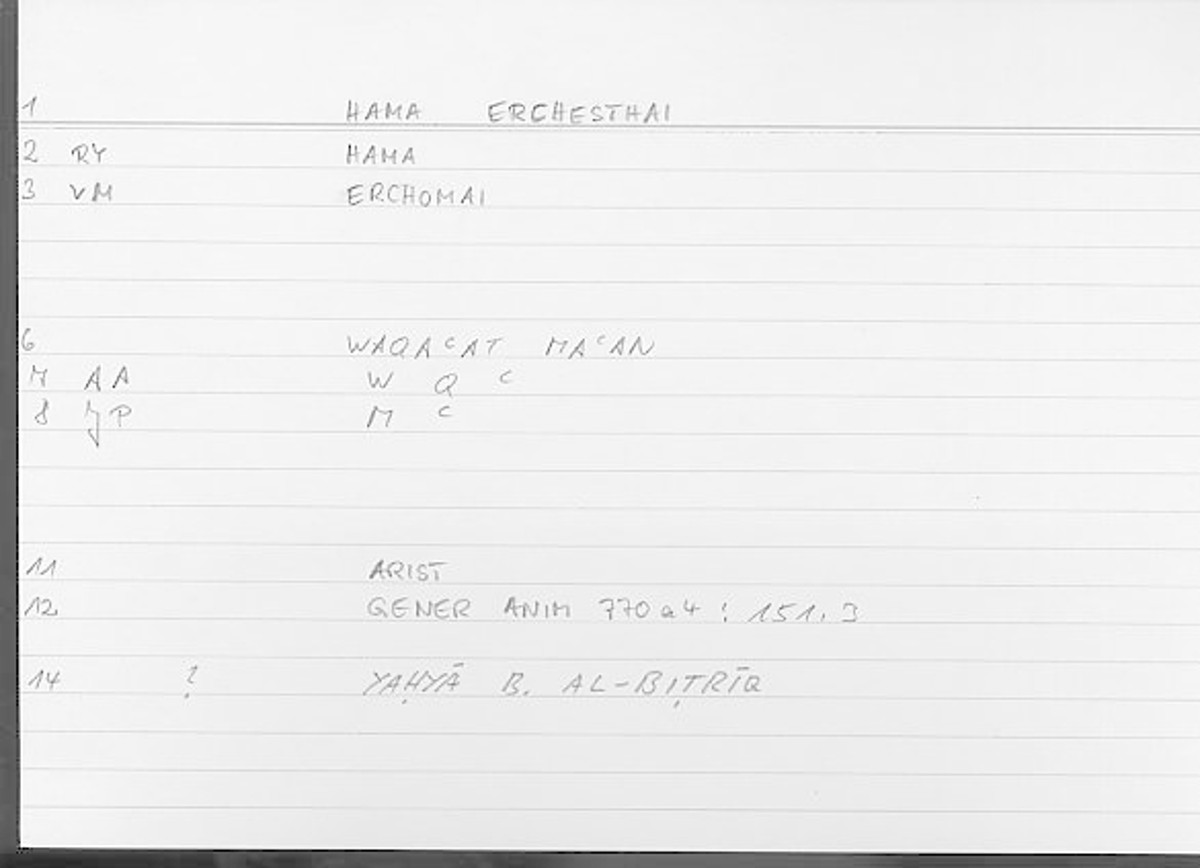 1 HAMA ERCHESTHAI
2 RY HAMA
3 VM ERCHOMAI
6 WAQAᶜAT MAᶜAN
7 AA W Q ᶜ
8 JP M ᶜ
11 ARIST
12 GENER ANIM 770a4 : 151.3
14 ? YAḤYĀ B. AL-BIṬRĪQ